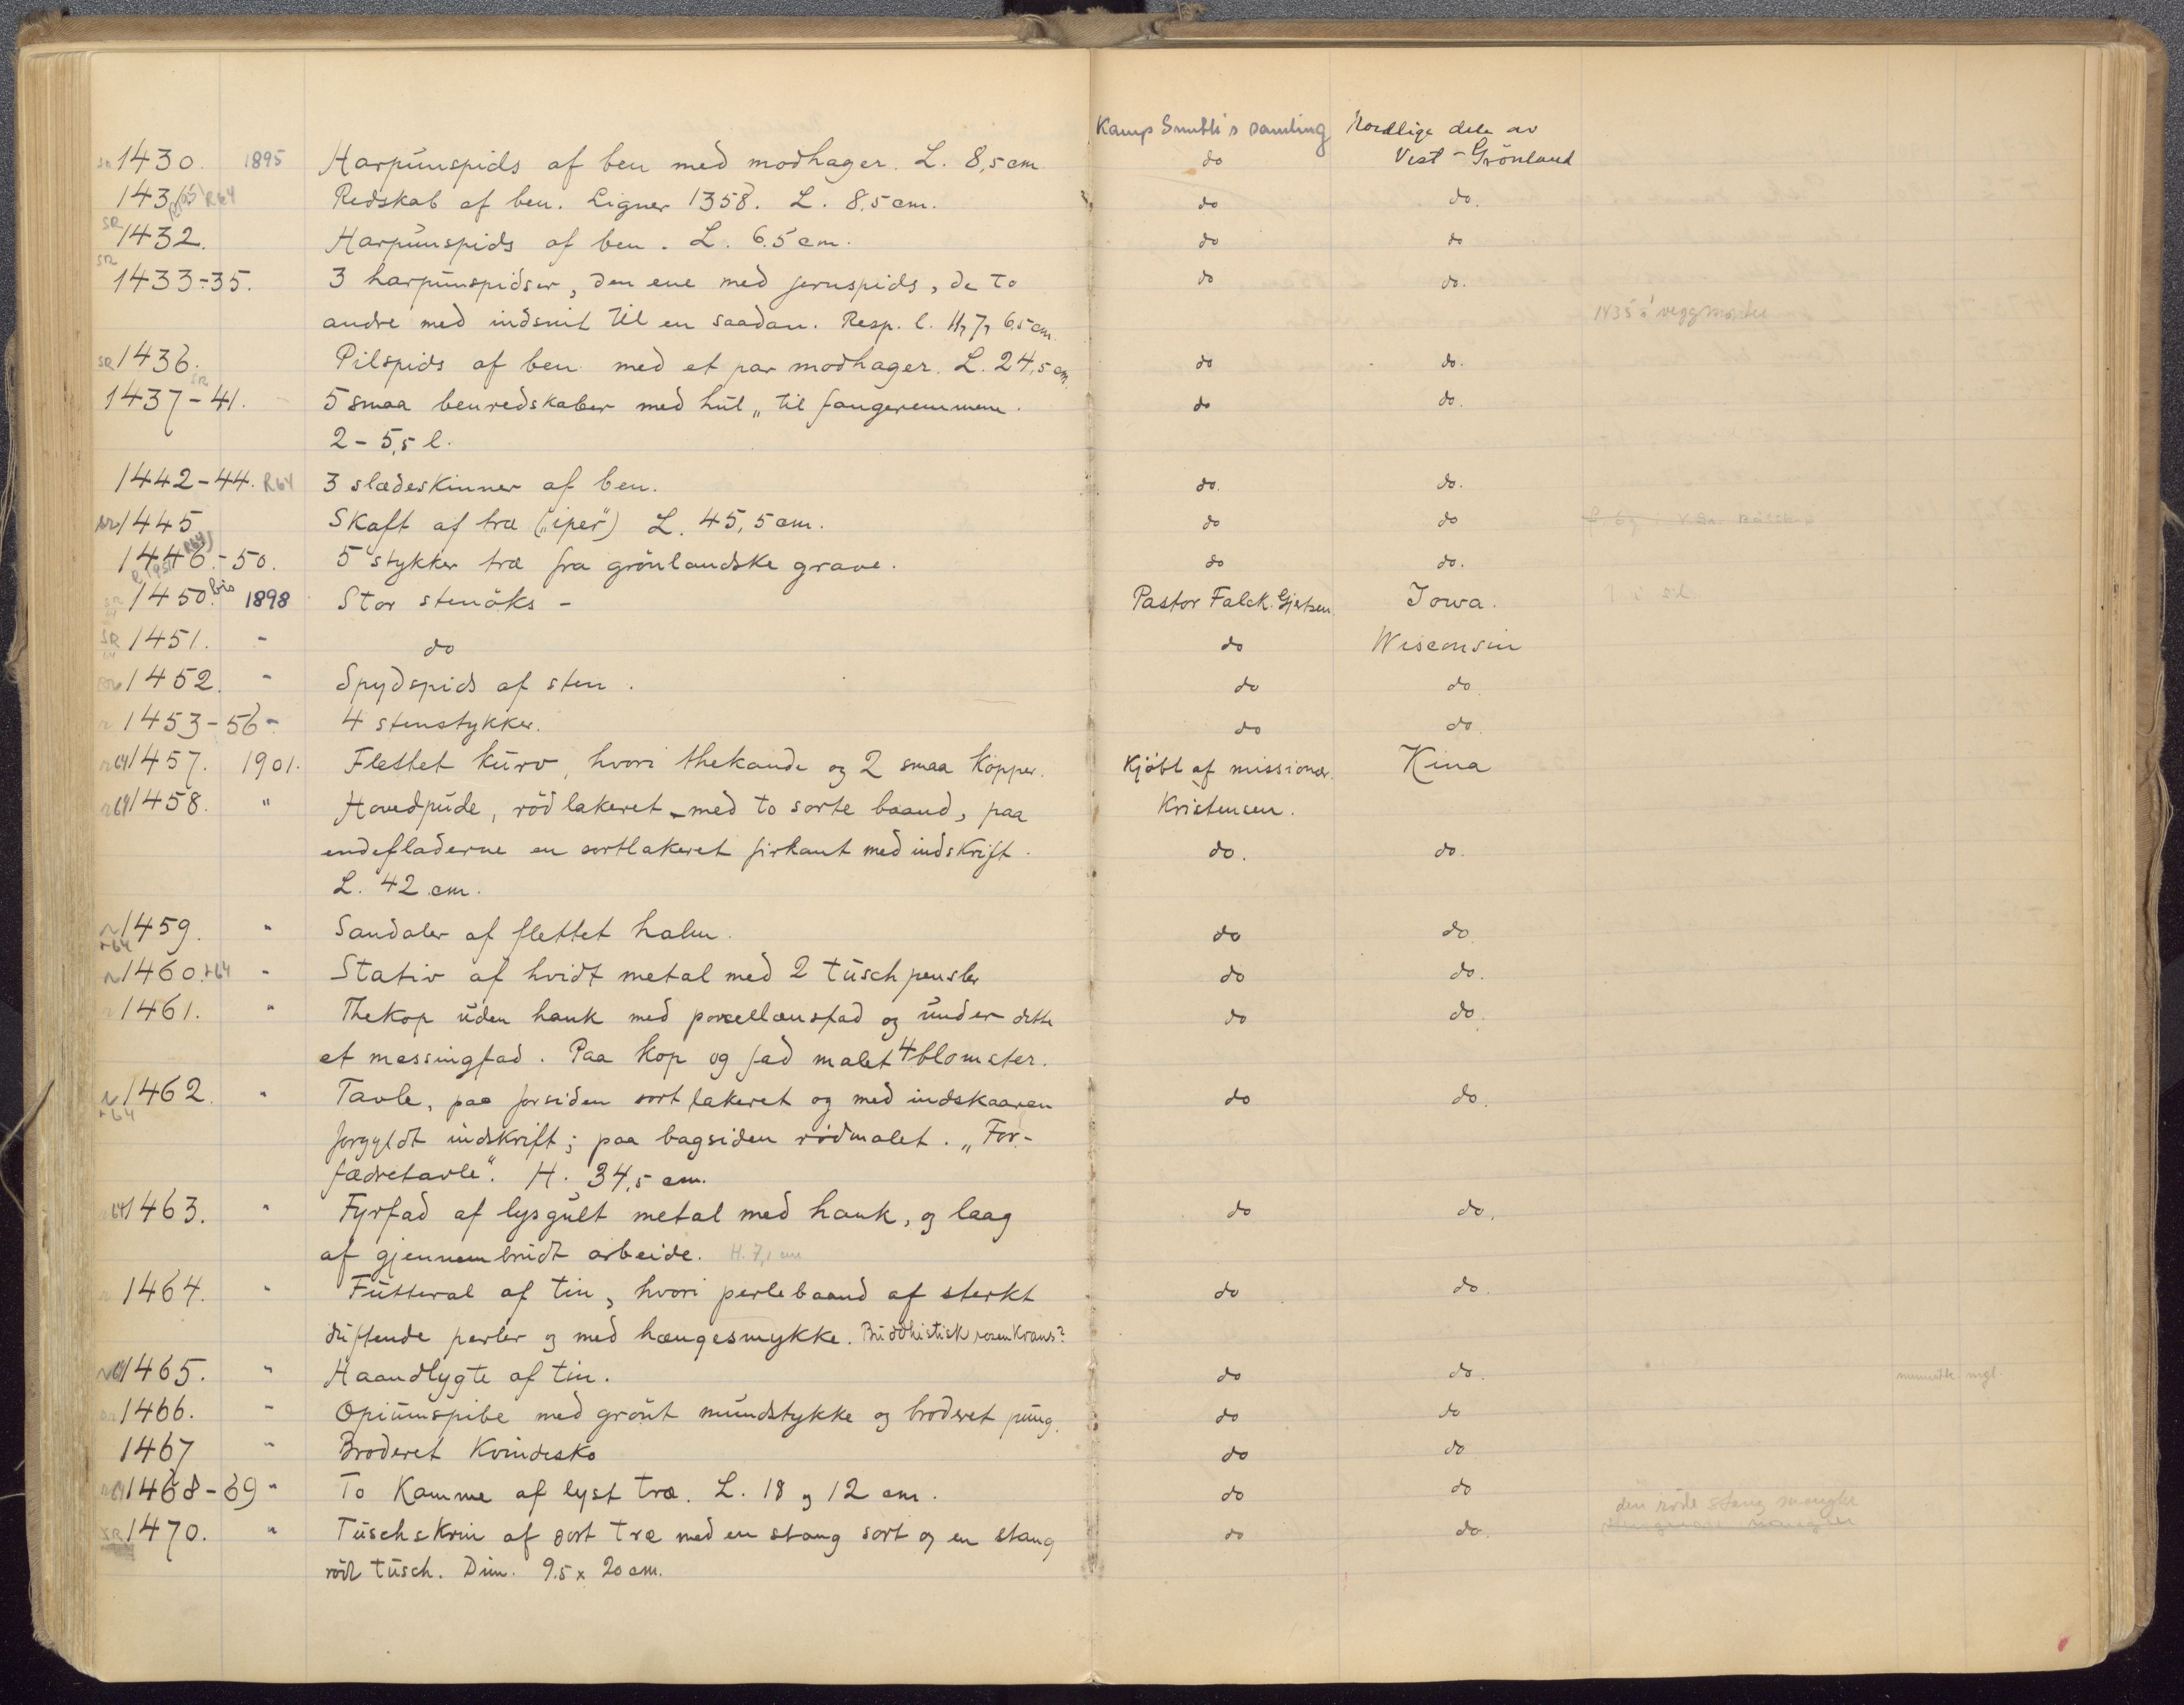 Kamp Smith's samling Nordlige dele av
SR 1430. 1895 Harpunspids af ben med modhager. L. 8,5 cm. do Vest-Grönland
1431 R64 Redskab af ben. Ligner 1358. L. 8.5 cm. do do.
SR 1432. Harpunspids af ben. L. 6.5 cm. do do
SR 1433-35. 3 harpunspidser, den ene med jernspids, de to do do.
andre med indsnit til en saadan. Resp. l. 11, 7, 6,5 cm. 1435 i veggmonter
SR 1436. Pilspids af ben med et par modhager. L. 24,5 cm. do do.
1437-41. SR 5 smaa benredskaber med hul „til fangeremmene. do do.
2-5,5 l.
1442-44. R64 3 slædeskinner af ben. do. do.
1445 Skaft af træ („iper") L. 45,5 cm. do do
1446.-50. R64 5 stykker træ fra grönlandske grave. do do.
1450. bis 1898 Stor stenöks - Pastor Falck. Gjertsen Iowa.
SR 1451. - do do Wisconsin
1452. - Spydspids af sten. do do.
1453-56 - 4 stenstykker. do do.
r64 1457. 1901. Flettet kurv, hvori thekande og 2 smaa kopper. Kjøbt af missionær. Kina
r64 1458. " Hovedpude, rödlakeret - med to sorte baand, paa Kristensen.
endefladerne en sortlakeret firkant med indskrift. do. do.
L. 42 cm.
1459. r64 " Sandaler af flettet halm. do do.
1460. r64 - Stativ af hvidt metal med 2 tuschpensler do do.
1461. " Thekop uden hank med porcellænsfad og under dette do do.
et messingfad. Paa kop og fad malet 4 blomster.
1462. r64 " Tavle, paa forsiden sort lakeret og med indskaaren do do.
forgyldt indskrift; paa bagsiden rödmalet. „For-
fædretavle". H. 34,5 cm.
64 1463. " Fyrfad af lysgult metal med hank, og laag do do.
af gjennembrudt arbeide. H. 7,1 cm
1464. " Futteral af tin, hvori perlebaand af sterkt do do.
duftende perler og med hængesmykke. Buddhistisk rosenkrans?
1465. " Haandlygte af tin. do do. mgl.
1466. - Opiumspibe med grönt mundstykke og broderet pung. do do
1467 " Broderet Kvindesko do do
r64 1468-69 " To Kamme af lyst træ. L. 18 og 12 cm. do do den röde stang mangler
SR 1470. " Tuschskrin af sort træ med en stang sort og en stang do do.
röd tusch. Dim. 9.5 x 20 cm.